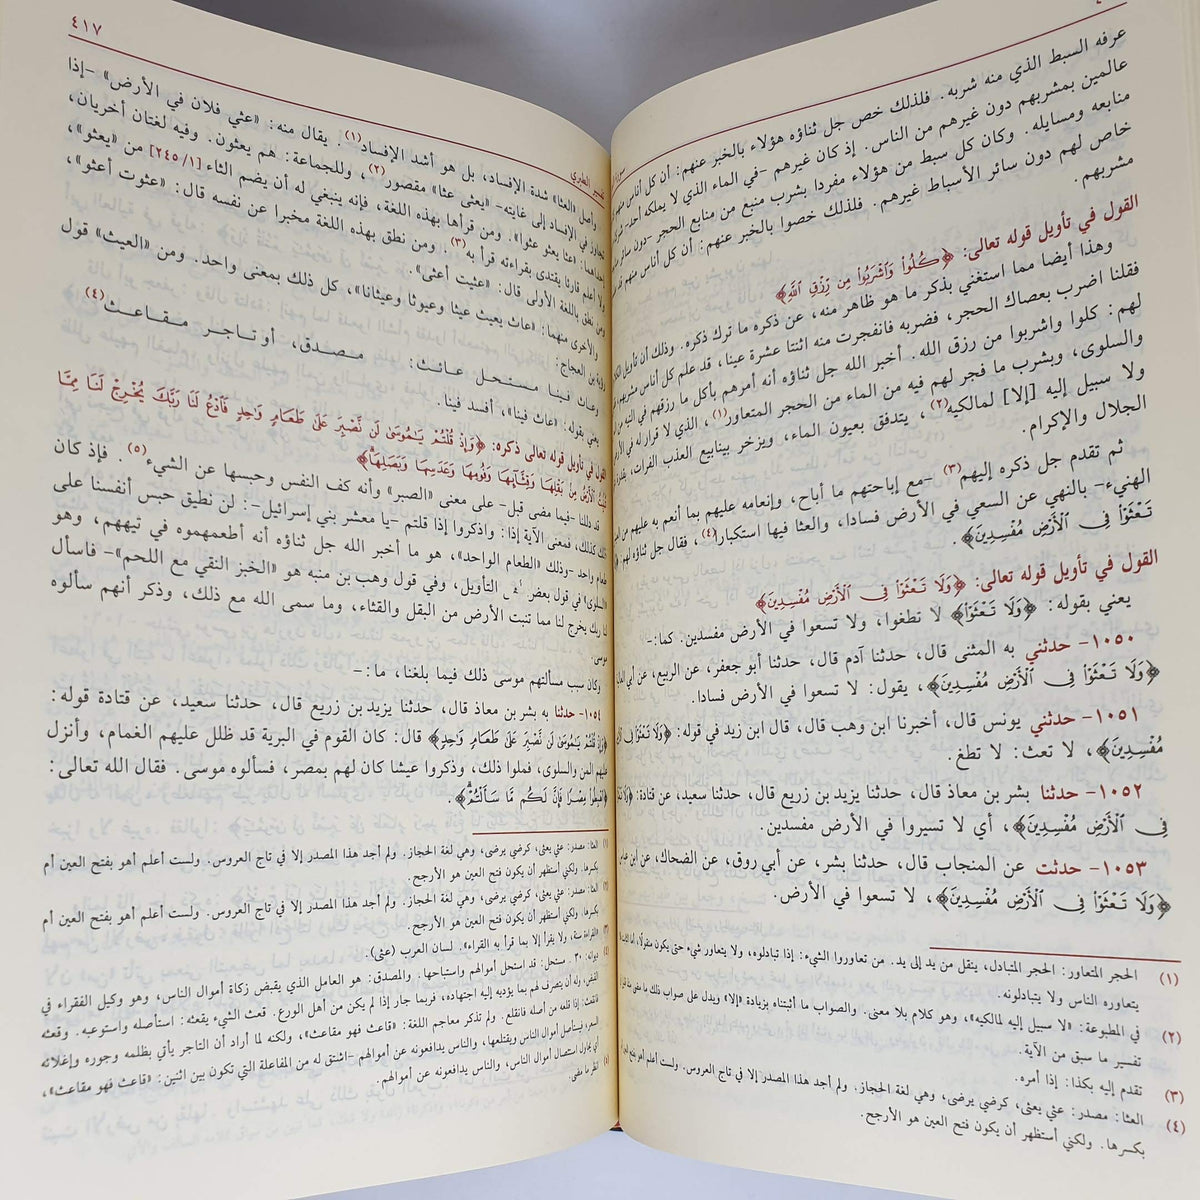 عرفه السبط الذي منه شربه. فلذلك خص جل ثناؤه هؤلاء بالخبر عنهم: أن كل أناس منهم
عالمين بمشربهم دون غيرهم من الناس. إذ كان غيرهم -في الماء الذي لا يملكه أحد-
منابعه ومسايله. وكان كل سبط من هؤلاء مفردا بشرب منبع من منابع الحجر -دون سائر
خاص لهم دون سائر الأسباط غيرهم. فلذلك خصوا بالخبر عنهم: أن كل أناس منهم
مشربهم.
القول في تأويل قوله تعالى: ﴿كُلُوا۟ وَٱشْرَبُوا۟ مِن رِّزْقِ ٱللَّهِ﴾
وهذا أيضا مما استغني بذكر ما هو ظاهر منه، عن ذكره ما ترك ذكره. وذلك أن تأويل
فقلنا اضرب بعصاك الحجر، فضربه فانفجرت منه اثنتا عشرة عينا، قد علم كل أناس مشربهم
لهم: كلوا واشربوا من رزق الله. أخبر الله جل ثناؤه أنه أمرهم بأكل ما رزقهم في التيه من
والسلوى، وبشرب ما فجر لهم فيه من الماء من الحجر المتعاور(١)، الذي لا قرار له في
ولا سبيل إليه [إلا] لمالكيه(٢)، يتدفق بعيون الماء، ويزخر بينابيع العذب الفرات،
الجلال والإكرام.
ثم تقدم جل ذكره إليهم(٣) -مع إباحتهم ما أباح، وإنعامه عليهم بما أنعم به عليهم من
الهنيء- بالنهي عن السعي في الأرض فسادا، والعثا فيها استكبارا(٤)، فقال جل ثناؤه لهم:
تَعْثَوْا۟ فِى ٱلْأَرْضِ مُفْسِدِينَ﴾.
القول في تأويل قوله تعالى: ﴿وَلَا تَعْثَوْا۟ فِى ٱلْأَرْضِ مُفْسِدِينَ﴾
يعني بقوله: ﴿وَلَا تَعْثَوْا۟﴾ لا تطغوا، ولا تسعوا في الأرض مفسدين. كما:-
١٠٥٠- حدثني به المثنى قال، حدثنا آدم قال، حدثنا أبو جعفر، عن الربيع، عن أبي
﴿وَلَا تَعْثَوْا۟ فِى ٱلْأَرْضِ مُفْسِدِينَ﴾، يقول: لا تسعوا في الأرض فسادا.
١٠٥١- حدثني يونس قال، أخبرنا ابن وهب قال، قال ابن زيد في قوله: ﴿وَلَا تَعْثَوْا۟ فِى
مُفْسِدِينَ﴾، لا تعث: لا تطغ.
١٠٥٢- حدثنا بشر بن معاذ قال، حدثنا يزيد بن زريع قال، حدثنا سعيد، عن قتادة: ﴿وَلَا
فِى ٱلْأَرْضِ مُفْسِدِينَ﴾، أي لا تسيروا في الأرض مفسدين.
١٠٥٣- حدثت عن المنجاب قال، حدثنا بشر، عن أبي روق، عن الضحاك، عن ابن
﴿وَلَا تَعْثَوْا۟ فِى ٱلْأَرْضِ مُفْسِدِينَ﴾، لا تسعوا في الأرض.
(١) الحجر المتعاور: الحجر المتبادل، ينقل من يد إلى يد. من تعاوروا الشيء: إذا تبادلوه، ولا يتعاور شيء حتى يكون منقولا،
يتعاوره الناس ولا يتبادلونه.
(٢) في المطبوعة: «لا سبيل إليه لمالكيه»، وهو كلام بلا معنى. والصواب ما أثبتناه بزيادة «إلا» ويدل على صواب ذلك ما
تفسير ما سبق من الآية.
(٣) تقدم إليه بكذا: إذا أمره.
(٤) العثا: مصدر: عثي يعثى، كرضي يرضى، وهي لغة الحجاز. ولم أجد هذا المصدر إلا في تاج العروس. ولست أعلم أهو بفتح
بكسرها. ولكني أستظهر أن يكون فتح العين هو الأرجح.
تفسير الطبري
٤١٧
وأصل «العثا» شدة الإفساد، بل هو أشد الإفساد(١). يقال منه: «عثي فلان في الأرض» -إذا
تجاوز في الإفساد إلى غايته- «يعثى عثا» مقصور(٢)، وللجماعة: هم يعثون. وفيه لغتان أخريان،
إحداهما: «عثا يعثو عثوا». ومن قرأها بهذه اللغة، فإنه ينبغي له أن يضم الثاء [٢٤٥/١] من «يعثو»،
ولا أعلم قارئا يقتدى بقراءته قرأ به(٣). ومن نطق بهذه اللغة مخبرا عن نفسه قال: «عثوت أعثو»،
ومن نطق باللغة الأولى قال: «عثيت أعثى».
والأخرى منهما: «عاث يعيث عيثا وعيوثا وعيثانا»، كل ذلك بمعنى واحد. ومن «العيث» قول
رؤبة بن العجاج:
وعاث فينا مستحل عائث: مصدق، أو تاجر مقاعث(٤)
يعني بقوله: «عاث فينا»، أفسد فينا.
القول في تأويل قوله تعالى ذكره: ﴿وَإِذْ قُلْتُمْ يَـٰمُوسَىٰ لَن نَّصْبِرَ عَلَىٰ طَعَامٍ وَٰحِدٍ فَٱدْعُ لَنَا رَبَّكَ يُخْرِجْ لَنَا مِمَّا
تُنۢبِتُ ٱلْأَرْضُ مِنۢ بَقْلِهَا وَقِثَّآئِهَا وَفُومِهَا وَعَدَسِهَا وَبَصَلِهَا﴾
قد دللنا -فيما مضى قبل- على معنى «الصبر» وأنه كف النفس وحبسها عن الشيء(٥). فإذ كان
ذلك كذلك، فمعنى الآية إذا: واذكروا إذا قلتم -يا معشر بني إسرائيل-: لن نطيق حبس أنفسنا على
طعام واحد -وذلك «الطعام الواحد»، هو ما أخبر الله جل ثناؤه أنه أطعمهموه في تيههم، وهو
«السلوى» في قول بعض التأويل، وفي قول وهب بن منبه هو «الخبز النقي مع اللحم»- فاسأل
لنا ربك يخرج لنا مما تنبت الأرض من البقل والقثاء، وما سمى الله مع ذلك، وذكر أنهم سألوه
موسى.
وكان سبب مسألتهم موسى ذلك فيما بلغنا، ما:-
١٠٥٤- حدثنا به بشر بن معاذ قال، حدثنا يزيد بن زريع قال، حدثنا سعيد، عن قتادة قوله:
﴿وَإِذْ قُلْتُمْ يَـٰمُوسَىٰ لَن نَّصْبِرَ عَلَىٰ طَعَامٍ وَٰحِدٍ﴾ قال: كان القوم في البرية قد ظلل عليهم الغمام، وأنزل
عليهم المن والسلوى، فملوا ذلك، وذكروا عيشا كان لهم بمصر، فسألوه موسى. فقال الله تعالى:
﴿ٱهْبِطُوا۟ مِصْرًا فَإِنَّ لَكُم مَّا سَأَلْتُمْ﴾.
(١) العثا: مصدر: عثي يعثى، كرضي يرضى، وهي لغة الحجاز. ولم أجد هذا المصدر إلا في تاج العروس. ولست أعلم أهو بفتح العين أم
بكسرها. ولكني أستظهر أن يكون فتح العين هو الأرجح.
(٢) العثا: مصدر: عثي يعثى، كرضي يرضى، وهي لغة الحجاز. ولم أجد هذا المصدر إلا في تاج العروس. ولست أعلم أهو بفتح العين أم
بكسرها. ولكني أستظهر أن يكون فتح العين هو الأرجح.
(٣) «القراءة سنة، ولا يقرأ إلا بما قرأ به القراء». لسان العرب (عثى).
(٤) ديوانه: ٣٠. مستحل: قد استحل أموالهم واستباحها. والمصدق: هو العامل الذي يقبض زكاة أموال الناس، وهو وكيل الفقراء في
القبض، وله أن يتصرف لهم بما يؤديه إليه اجتهاده، فربما جار إذا لم يكن من أهل الورع. قعث الشيء يقعثه: استأصله واستوعبه. وقعثه
فانقعث: إذا قلعه من أصله فانقلع. ولم تذكر معاجم اللغة: «قاعث فهو مقاعث»، ولكنه لما أراد أن التاجر يأتي بظلمه وجوره وإغلائه
السعر، فيستأصل أموال الناس ويقتلعها، والناس يدافعونه عن أموالهم -اشتق له من المفاعلة التي تكون بين اثنين: «قاعث فهو مقاعث»،
أي يحاول استئصال أموال الناس، والناس يدافعونه عن أموالهم.
(٥) انظر ما مضى: